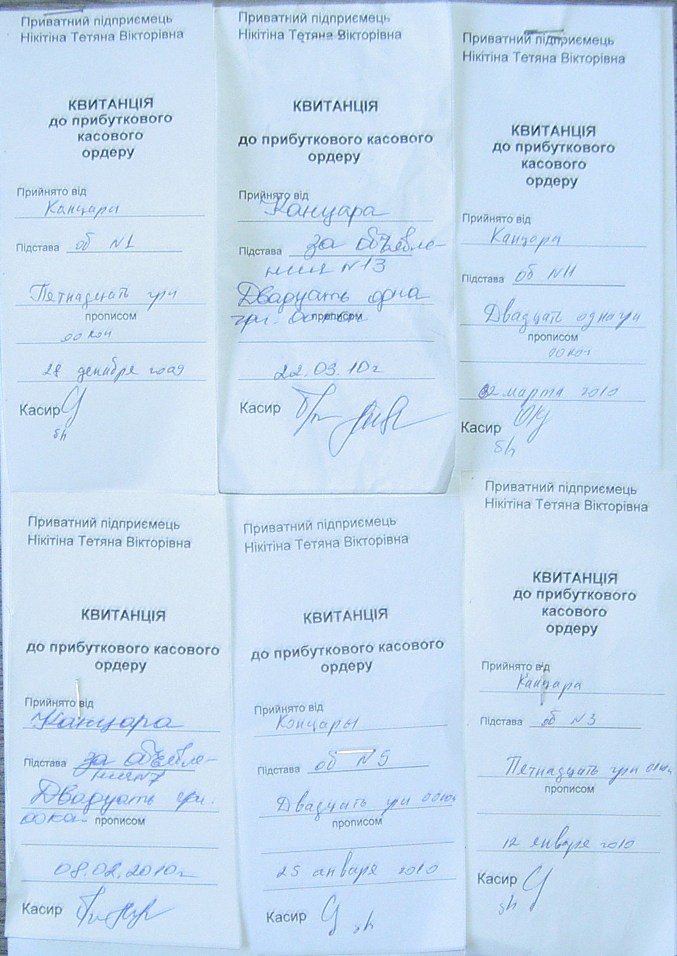 Приватний підприємець
Нікітіна Тетяна Вікторівна
КВИТАНЦІЯ
до прибуткового
касового
ордеру
Прийнято від
Канцары
Підстава об N1
Пятнадцать грн
прописом
00 коп
28 декабря 2009
Касир
Приватний підприємець
Нікітіна Тетяна Вікторівна
КВИТАНЦІЯ
до прибуткового касового
ордеру
Прийнято від
Канцара
Підстава за объявле-
ния N13
Двадцать одна
грн. 00 коп.
прописом
22.03.10г
Касир
Приватний підприємець
Нікітіна Тетяна Вікторівна
КВИТАНЦІЯ
до прибуткового
касового
ордеру
Прийнято від
Канцара
Підстава об N11
Двадцать одно грн
прописом
00 коп
марта 2010
Касир
Приватний підприємець
Нікітіна Тетяна Вікторівна
КВИТАНЦІЯ
до прибуткового касового
ордеру
Прийнято від
Канцара
Підстава за объявле-
ния N7
Двадцать грн.
00 коп. прописом
08.02.2010г
Касир
Приватний підприємець
Нікітіна Тетяна Вікторівна
КВИТАНЦІЯ
до прибуткового касового
ордеру
Прийнято від
Канцары
Підстава об N5
Двадцать грн 00 коп
прописом
25 января 2010
Касир
Приватний підприємець
Нікітіна Тетяна Вікторівна
КВИТАНЦІЯ
до прибуткового
касового
ордеру
Прийнято від
Канцара
Підстава об N3
Пятнадцать грн 00 коп
прописом
12 января 2010
Касир